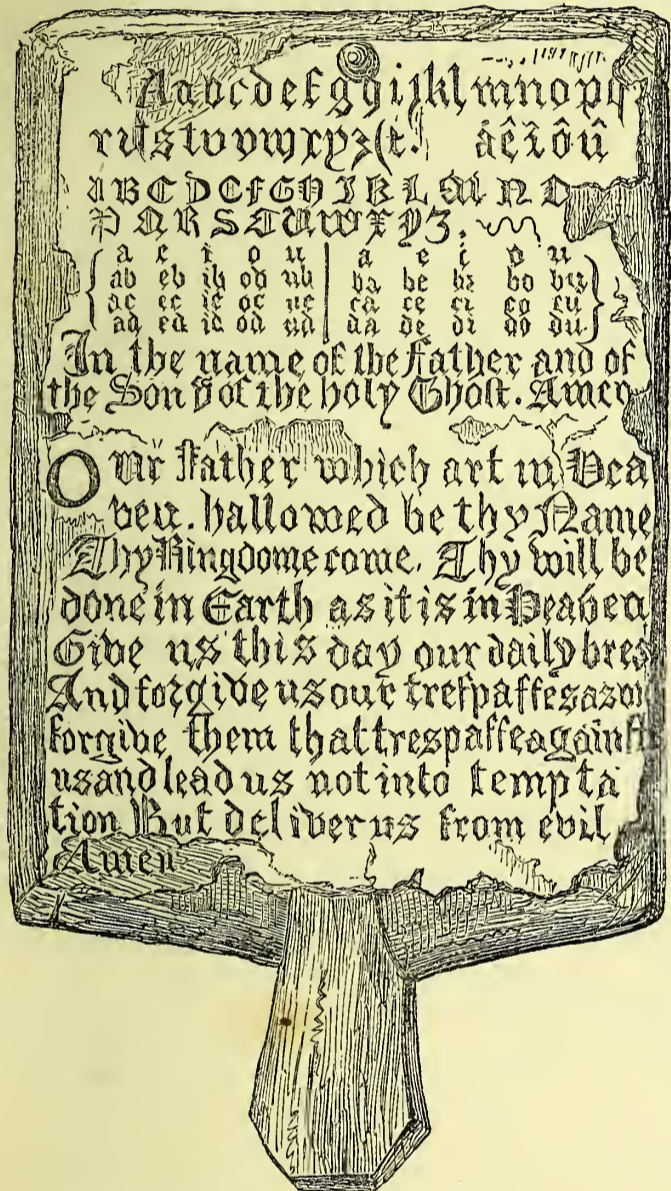 Aabcdefghijklmnopq
rſstuvvwxyz(t. âêîôû
ABCDEFGHIJKLMNO
PQRSTUWXYZ.
a e i o u a e i o u
ab eb ib ob ub ba be bi bo bu
ac ec ic oc uc ca ce ci co cu
ad ed id od ud da de di do du
In the name of the Father and of
the Son & of the holy Ghoſt. Amen
Our Father which art in Hea
ven. hallowed be thy Name
Thy Kingdome come. Thy will be
done in Earth as it is in Heaven
Give us this day our daily brea
And forgive us our treſpaſſes as we
forgive them that trespaſſe againſt
us and lead us not into tempta
tion But deliver us from evil
Amen